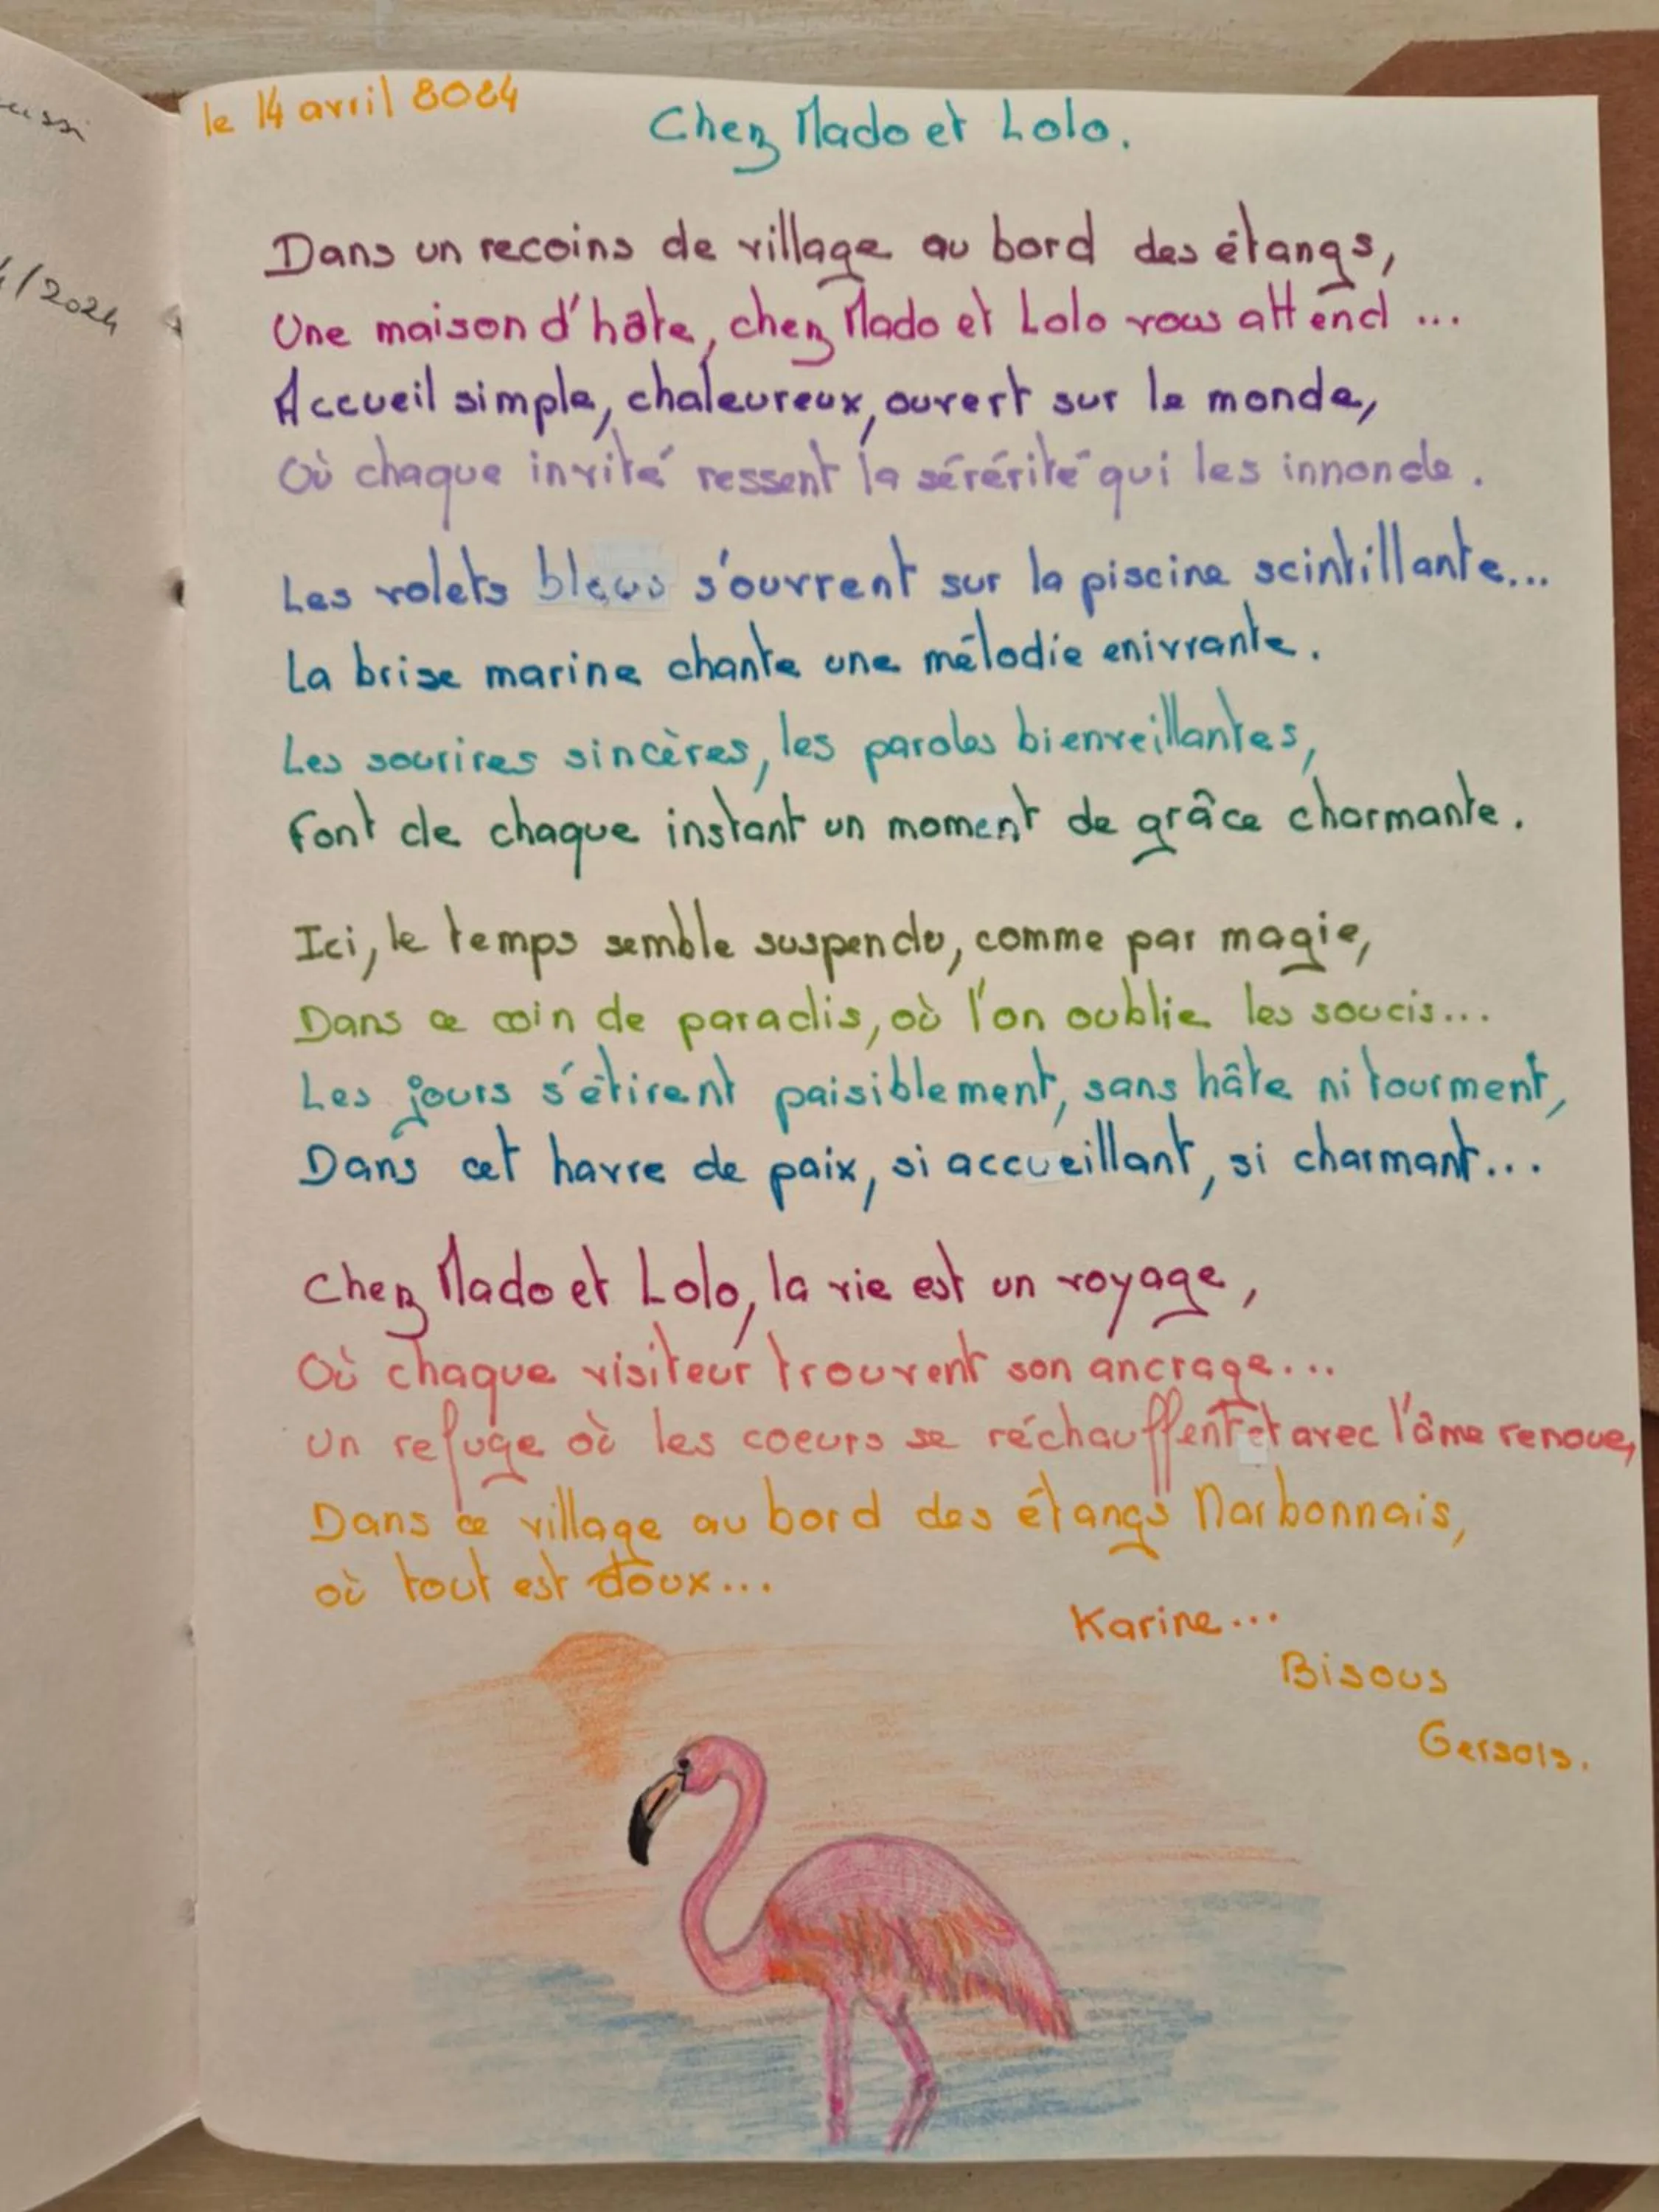 ussi
4/2024
le 14 avril 2024
Chez Mado et Lolo.
Dans un recoins de village au bord des étangs,
Une maison d'hôte, chez Mado et Lolo vous attend ...
Accueil simple, chaleureux, ouvert sur le monde,
Où chaque invité ressent la sérérité qui les innonde.
Les volets bleus s'ouvrent sur la piscine scintillante...
La brise marine chante une mélodie enivrante.
Les sourires sincères, les paroles bienveillantes,
Font de chaque instant un moment de grâce charmante.
Ici, le temps semble suspendu, comme par magie,
Dans ce coin de paradis, où l'on oublie les soucis...
Les jours s'étirent paisiblement, sans hâte ni tourment,
Dans cet havre de paix, si accueillant, si charmant...
Chez Mado et Lolo, la vie est un voyage,
Où chaque visiteur trouvent son ancrage...
Un refuge où les coeurs se réchauffent et avec l'âme renoue,
Dans ce village au bord des étangs Narbonnais,
où tout est doux...
Karine...
Bisous
Gersois.